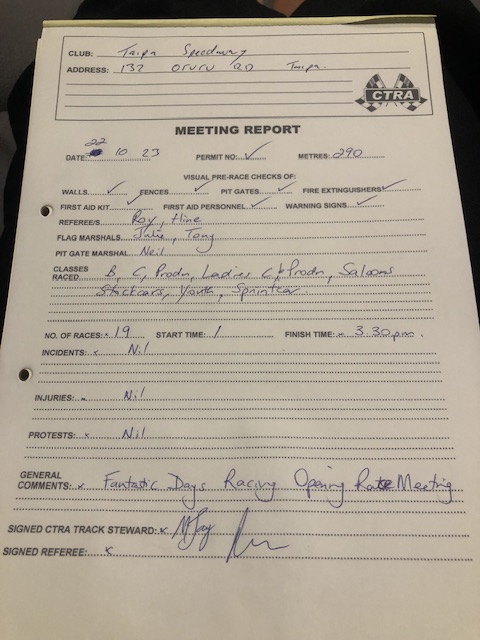 CLUB: Taipa Speedway
ADDRESS: 132 Oruru RD Taipa.
CTRA
MEETING REPORT
DATE: 22 10 23 PERMIT NO: ✓ METRES: 290
VISUAL PRE-RACE CHECKS OF:
WALLS ✓ FENCES ✓ PIT GATES ✓ FIRE EXTINGUISHERS ✓
FIRST AID KIT ✓ FIRST AID PERSONNEL ✓ WARNING SIGNS ✓
REFEREE/S Roy, Hine
FLAG MARSHALS Julie, Tony
PIT GATE MARSHAL Neil
CLASSES B, C, Prodn, Ladies C & Prodn, Saloons
RACED
Stockcars, Youth, Sprintcar
NO. OF RACES: 19 START TIME: 1 FINISH TIME: 3.30pm.
INCIDENTS: x Nil
INJURIES: Nil
PROTESTS: x Nil
GENERAL
COMMENTS: x Fantastic Days Racing Opening Meeting
SIGNED CTRA TRACK STEWARD: x
SIGNED REFEREE: x